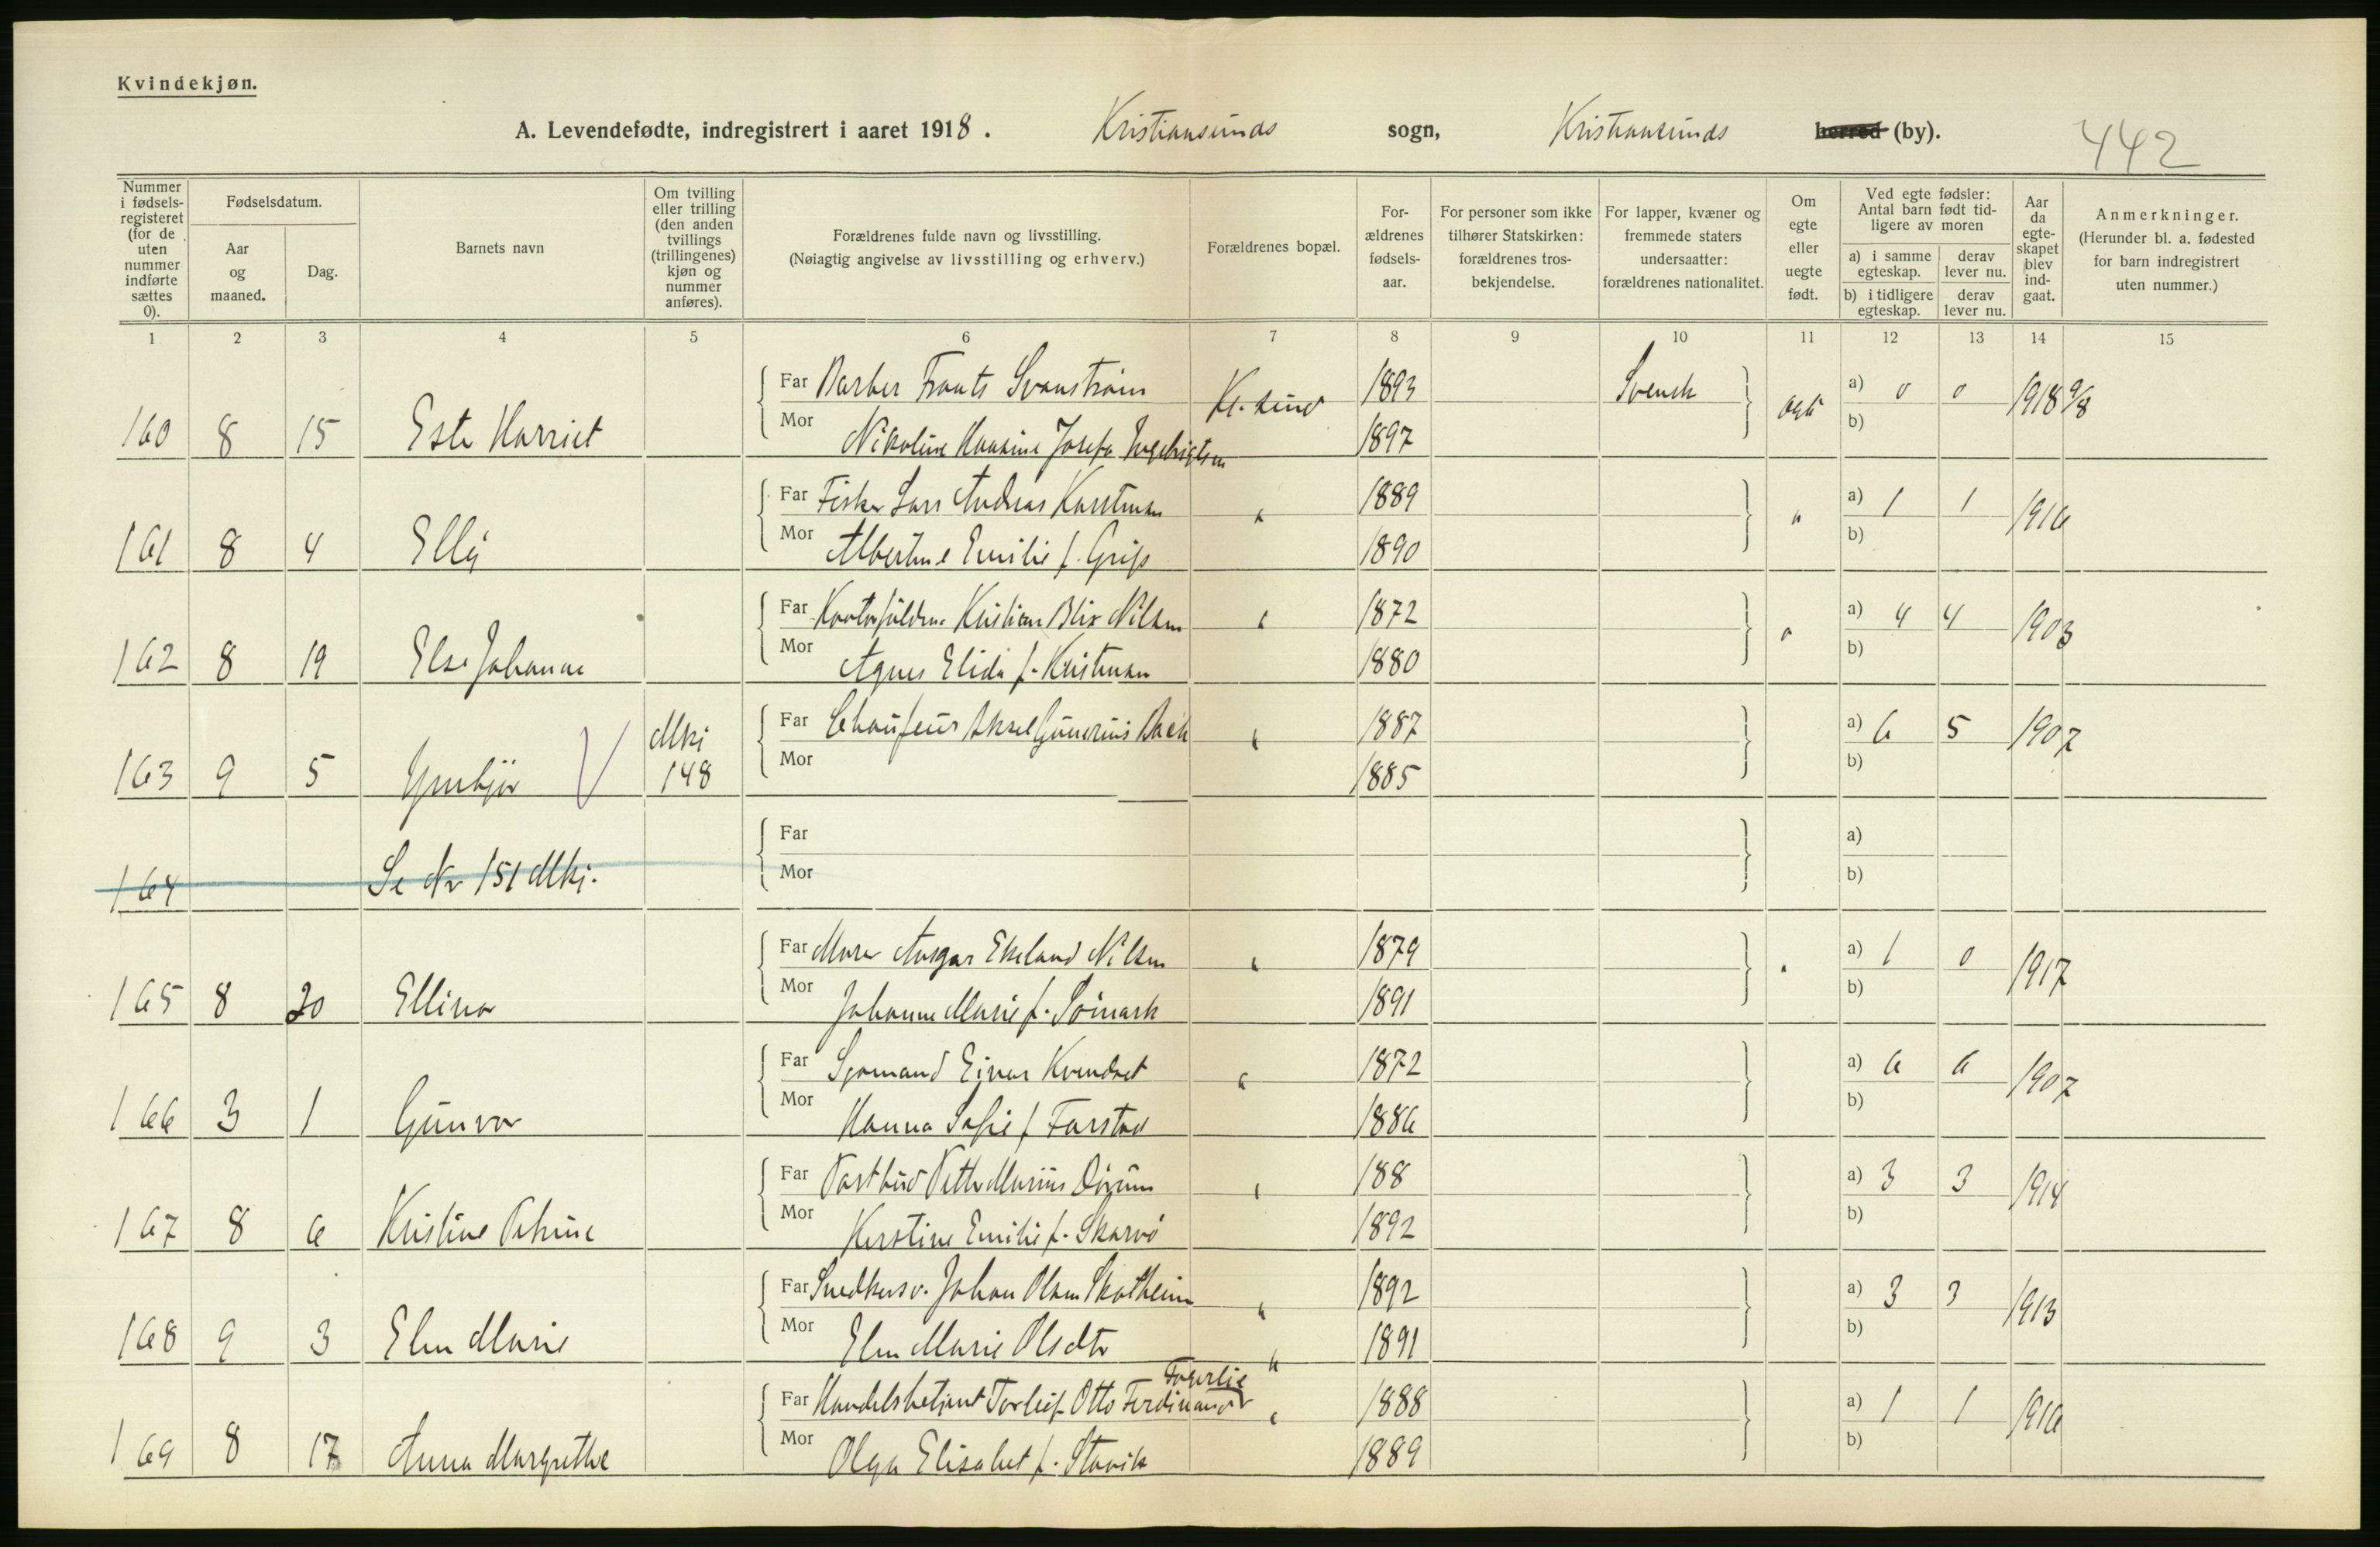 Kvindekjøn.
A. Levendefødte, indregistrert i aaret 1918. Kristiansunds sogn, Kristiansunds herred (by). 442
Nummer i fødsels-registeret (for de uten nummer indførte sættes 0).
Fødselsdatum.
Aar og maaned.
Dag.
Barnets navn
Om tvilling eller trilling (den anden tvillings (trillingenes) kjøn og nummer anføres).
Forældrenes fulde navn og livsstilling.
(Nøiagtig angivelse av livsstilling og erhverv.)
Forældrenes bopæl.
For-ældrenes fødsels-aar.
For personer som ikke tilhører Statskirken: forældrenes tros-bekjendelse.
For lapper, kvæner og fremmede staters undersaatter: forældrenes nationalitet.
Om egte eller uegte født.
Ved egte fødsler: Antal barn født tid-ligere av moren
a) i samme egteskap.
derav lever nu.
b) i tidligere egteskap.
derav lever nu.
Aar da egte-skapet blev ind-gaat.
Anmerkninger.
(Herunder bl. a. fødested for barn indregistrert uten nummer.)
1 2 3 4 5 6 7 8 9 10 11 12 13 14 15
Far Barber Frants Svanstrøm Kr.sund 1893 Svensk a) 0 0 1918 9/8
160 8 15 Harriet Mor Nikoline Josefa 1897 egte b)
Far Fisker Lars Andreas Karstensen " 1889 " a) 1 1 1916
161 8 4 Elly Mor Albertine Emilie f. Grip 1890 b)
Far Kristian Blix Nilsen " 1872 " a) 4 4 1903
162 8 19 Else Johanne Mor Agnes Elida f. Kristensen 1880 b)
Far Chauffeur Aksel Gunerius Bach " 1887 a) 6 5 1907
163 9 5 Mkj 148 Mor 1885 b)
Far a)
164 Se Nr 151 Mkj. Mor b)
Far Murer Ansgar Ekeland Nilsen " 1879 " a) 1 0 1917
165 8 20 Ellinor Mor Johanne Marie f. 1891 b)
Far Sjømand Einar " 1872 a) 6 6 1907
166 3 1 Gunvor Mor Hanna Sofie f. Farstad 1886 b)
Far Postbud Petter Marius " 188 a) 3 3 1914
167 8 6 Kristine Mor Kirstine Emilie f. Skarvø 1892 b)
Far Snedkersv. Johan Olsen Skotheim " 1892 a) 3 3 1913
168 9 3 Elen Marie Mor Elen Marie Olsdtr " 1891 b)
Far Handelsbetjent Torleif Otto Ferdinand Fagerlie " 1888 a) 1 1 1916
169 8 17 Anna Margrethe Mor Olga Elisabet f. Stavik 1889 b)